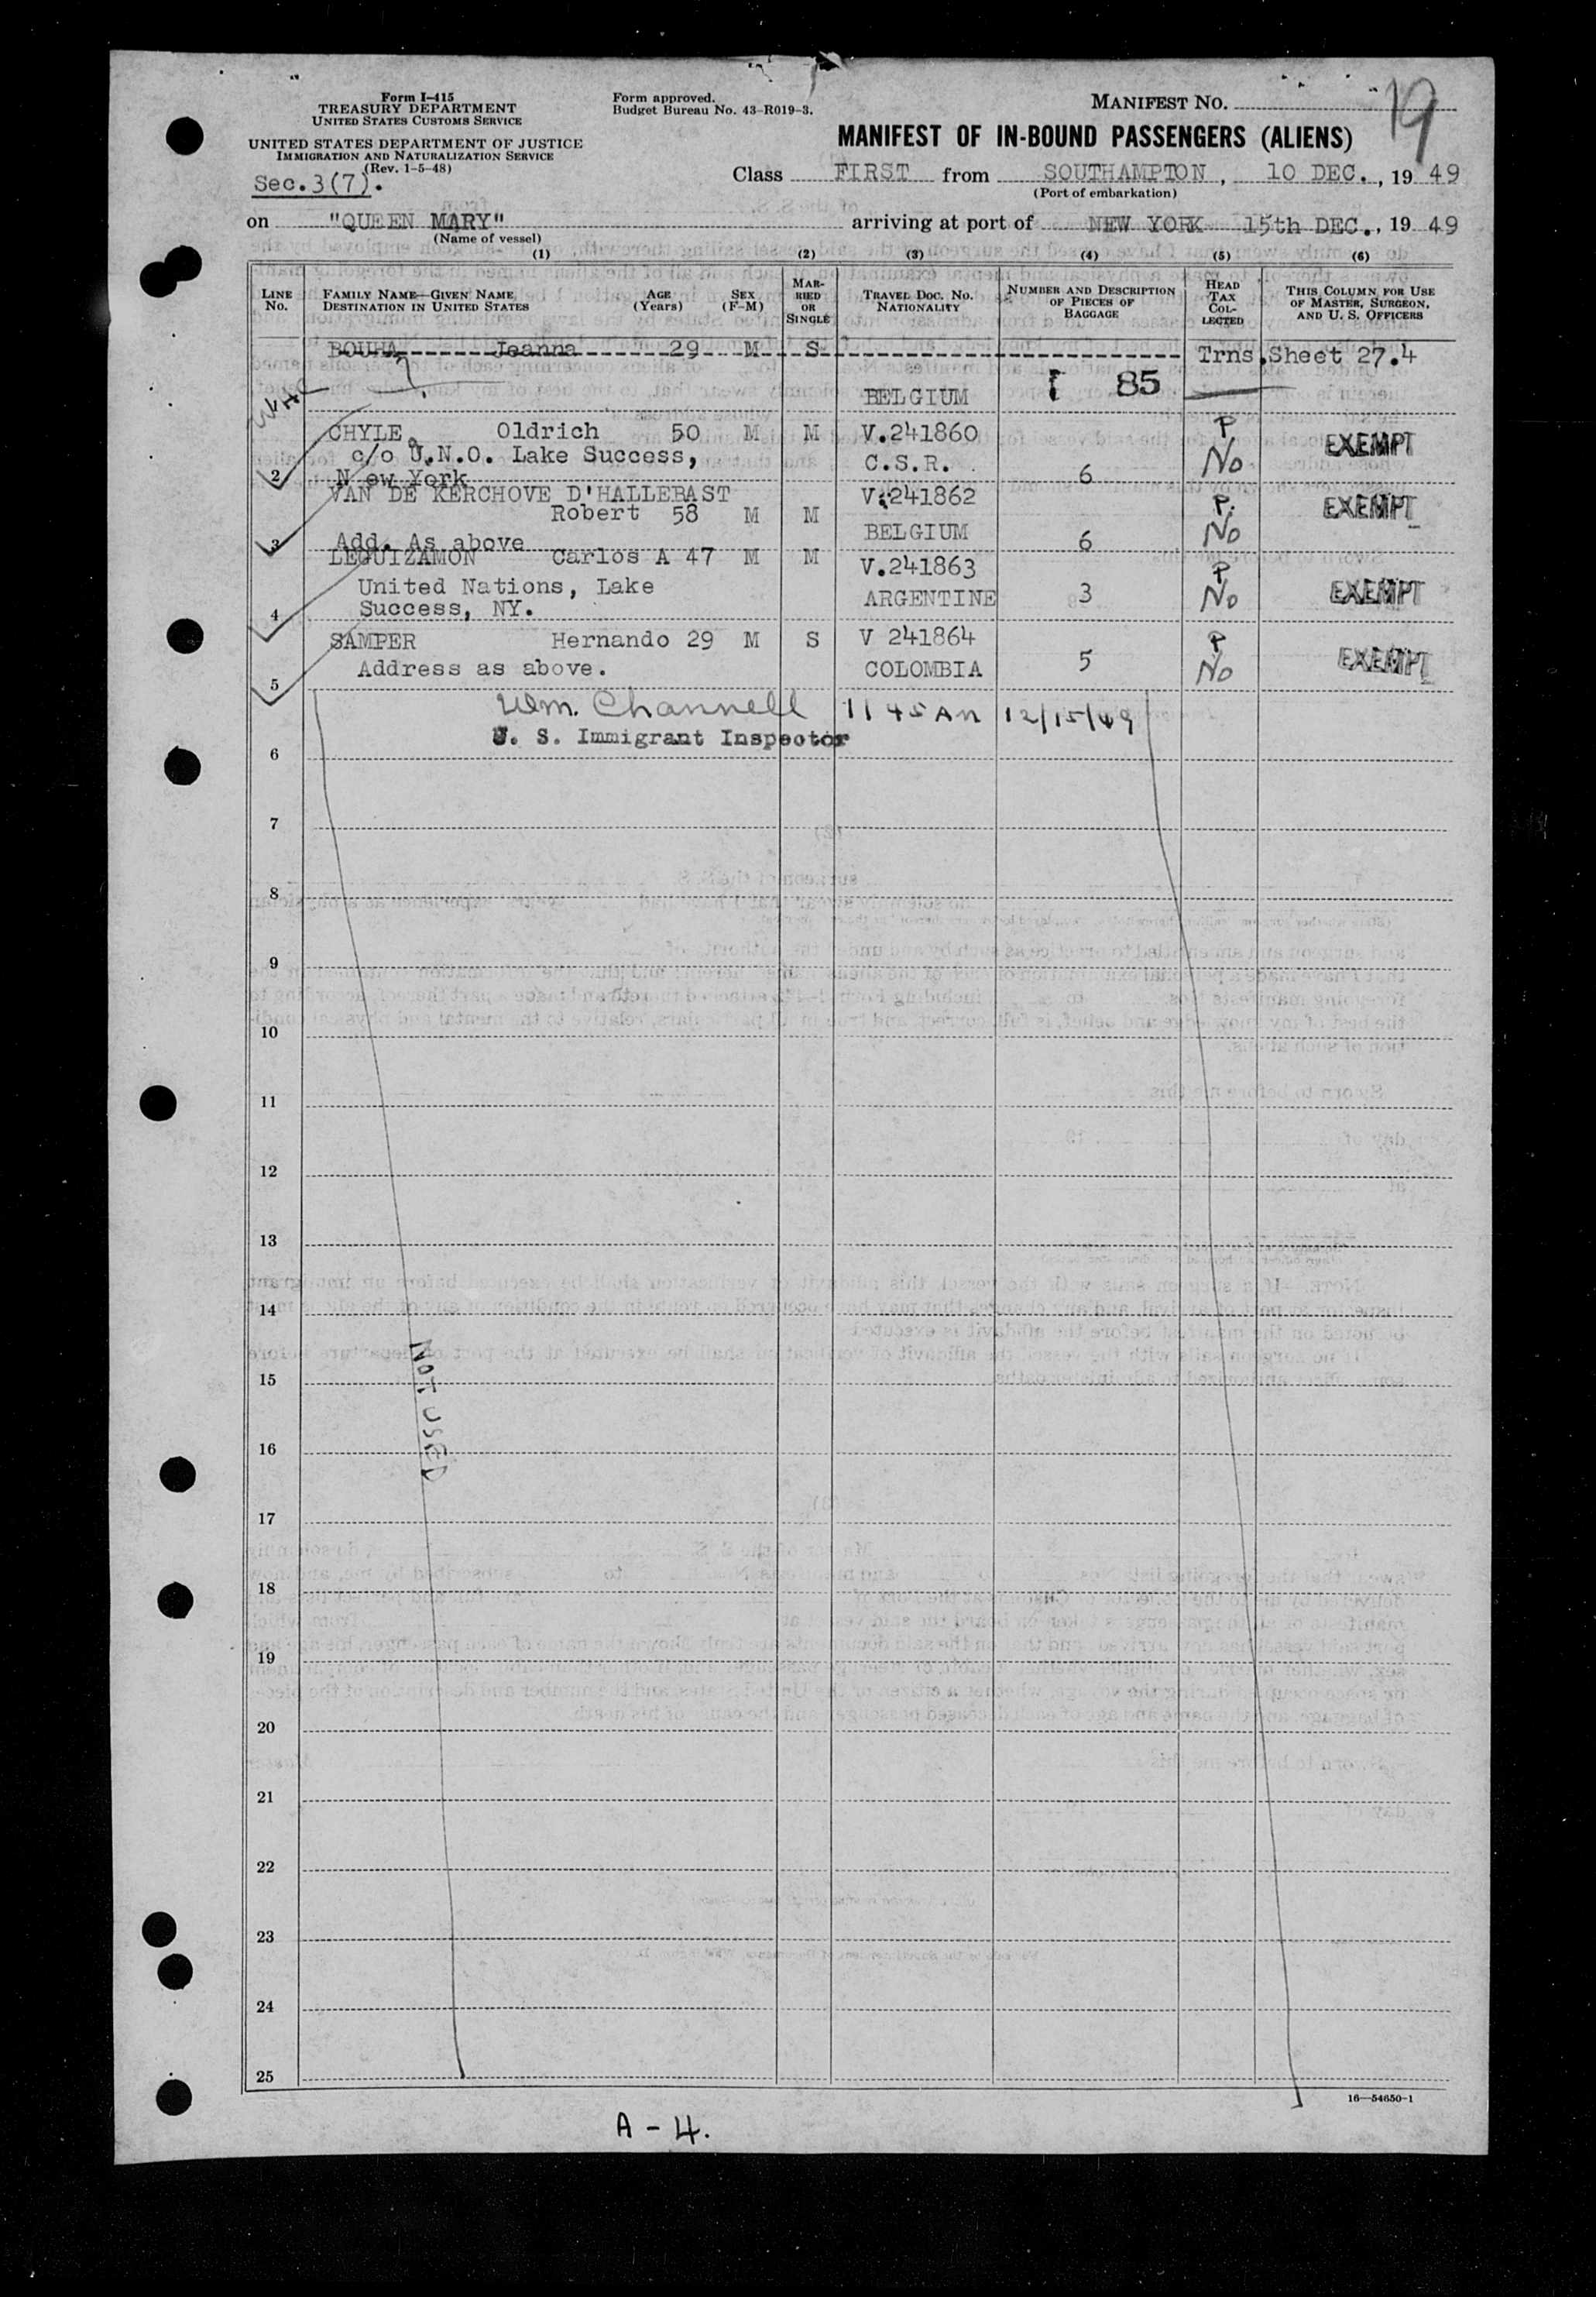 Form I-415
TREASURY DEPARTMENT
UNITED STATES CUSTOMS SERVICE
UNITED STATES DEPARTMENT OF JUSTICE
IMMIGRATION AND NATURALIZATION SERVICE
(Rev. 1-5-48)
Sec.3(7).
Form approved.
Budget Bureau No. 43-R019-3.
MANIFEST NO. 19
MANIFEST OF IN-BOUND PASSENGERS (ALIENS)
Class FIRST from SOUTHAMPTON, 10 DEC., 19 49
(Port of embarkation)
on "QUEEN MARY" arriving at port of NEW YORK 15th DEC., 19 49
(Name of vessel)
(1) (2) (3) (4) (5) (6)
LINE NO. FAMILY NAME—GIVEN NAME DESTINATION IN UNITED STATES AGE (Years) SEX (F-M) MARRIED OR SINGLE TRAVEL DOC. NO. NATIONALITY NUMBER AND DESCRIPTION OF PIECES OF BAGGAGE HEAD TAX COLLECTED THIS COLUMN FOR USE OF MASTER, SURGEON, AND U. S. OFFICERS
BOUHA Jeanna 29 M S Trns.Sheet 27.4
BELGIUM 85
CHYLE Oldrich 50 M M V.241860 P EXEMPT
c/o U.N.O. Lake Success, C.S.R. No
2 New York 6
VAN DE KERCHOVE D'HALLEBAST V.241862 P. EXEMPT
Robert 58 M M
BELGIUM No
3 Add. As above 6
LEGUIZAMON Carlos A 47 M M V.241863 P
United Nations, Lake ARGENTINE 3 No EXEMPT
4 Success, NY.
SAMPER Hernando 29 M S V 241864 P
Address as above. COLOMBIA 5 No EXEMPT
5
Wm. Channell 11 45 AM 12/15/49
U. S. Immigrant Inspector
6
7
8
9
10
11
12
13
14
15
NOT USED
16
17
18
19
20
21
22
23
24
25
16—54650-1
A-4.